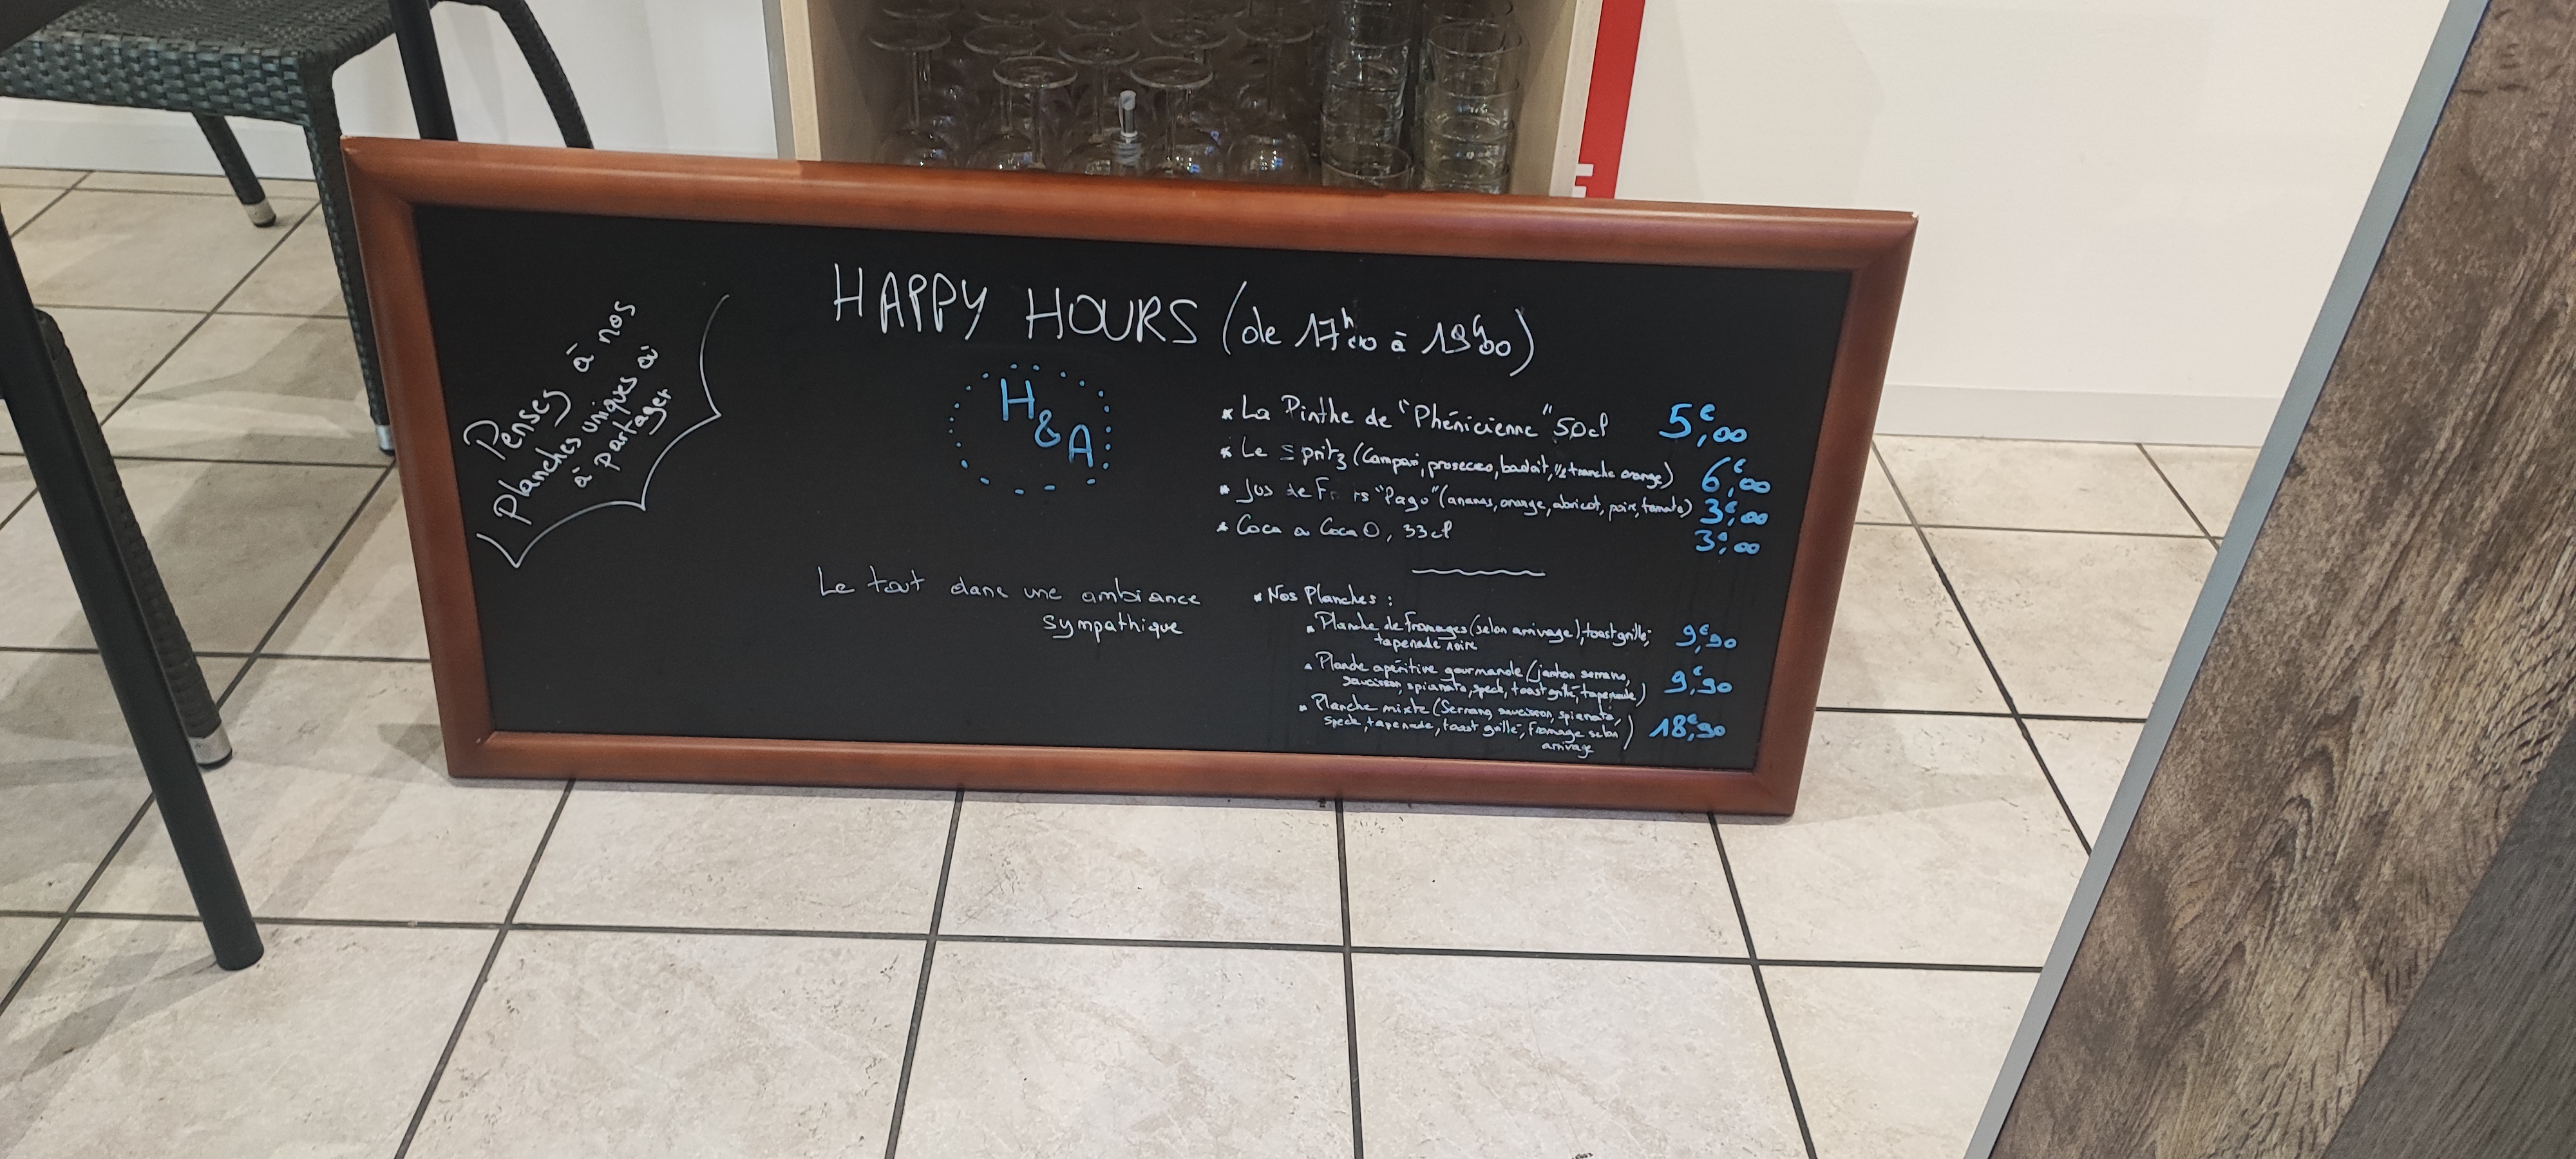 Penses à nos
planches uniques à
à partager
HAPPY HOURS (de 17h00 à 19h00)
H
&
A
* La Pinthe de "Phénicienne" 50cl 5€,00
* Le Spritz (Campari, prosecco, badoit, 1/2 tranche orange) 6€,00
* Jus de Fruits "Pago" (ananas, orange, abricot, poire, tomate) 3€,00
* Coca ou Coca 0, 33cl 3€,00
Le tout dans une ambiance
sympathique
* Nos Planches :
* Planche de fromages (selon arrivage), toast grillé, 9€,90
tapenade noire
* Planche apéritive gourmande (jambon serrano,
saucisson, spianata, speck, toast grillé, tapenade) 9€,90
* Planche mixte (Serrano, saucisson, spianata,
speck, tapenade, toast grillé, fromage selon 18€,90
arrivage)